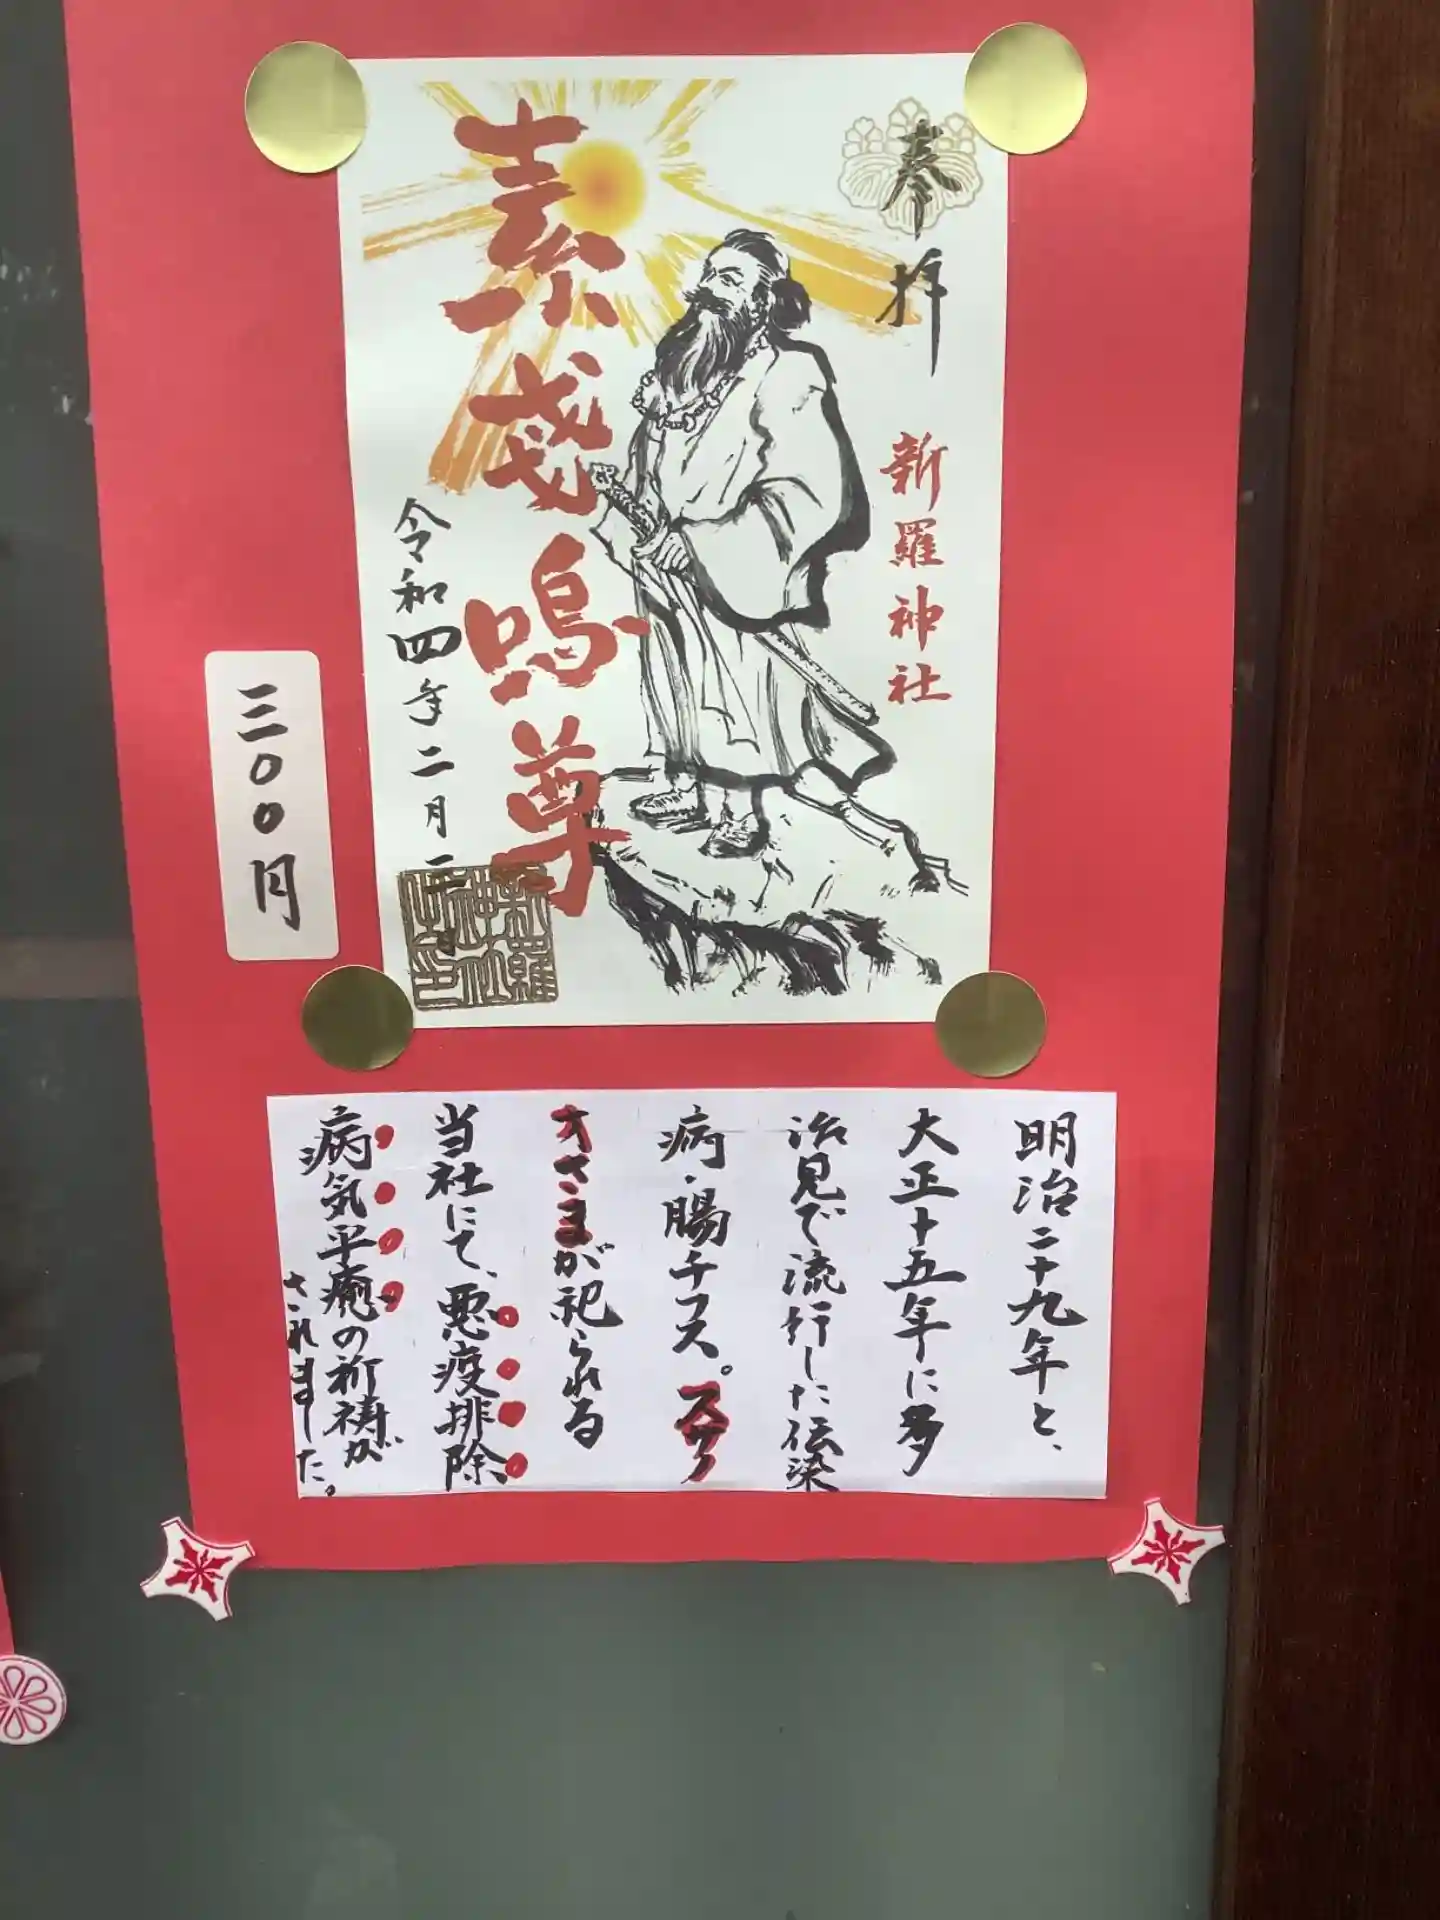 奉拝
新羅神社
素戔嗚尊
令和四年二月一日
新羅神社之印
三〇〇円
明治二十九年と、
大正十五年に多
治見で流行した伝染
病・腸チフス。スサノ
オさまが祀られる
当社にて、悪疫排除、
病気平癒の祈祷が
されました。